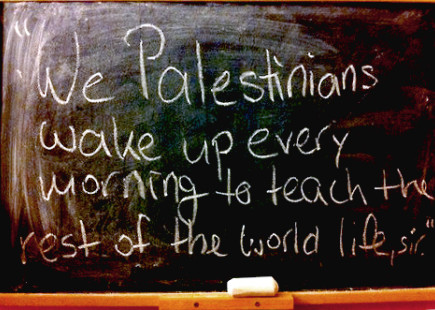 "We Palestinians
wake up every
morning to teach the
rest of the world life, sir."